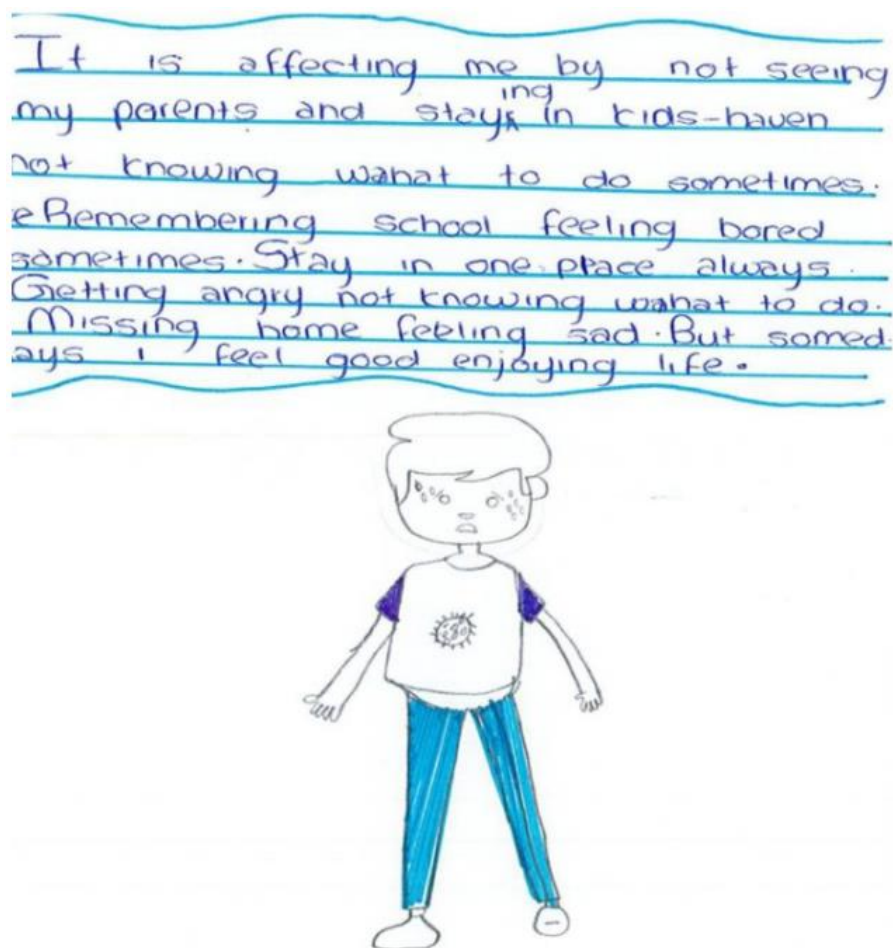 It is affecting me by not seeing
my parents and staying in kids-haven
not knowing wahat to do sometimes.
e Remembering school feeling bored
sometimes. Stay in one place always.
Getting angry not knowing wahat to do.
Missing home feeling sad. But somed
ays i feel good enjoying life.